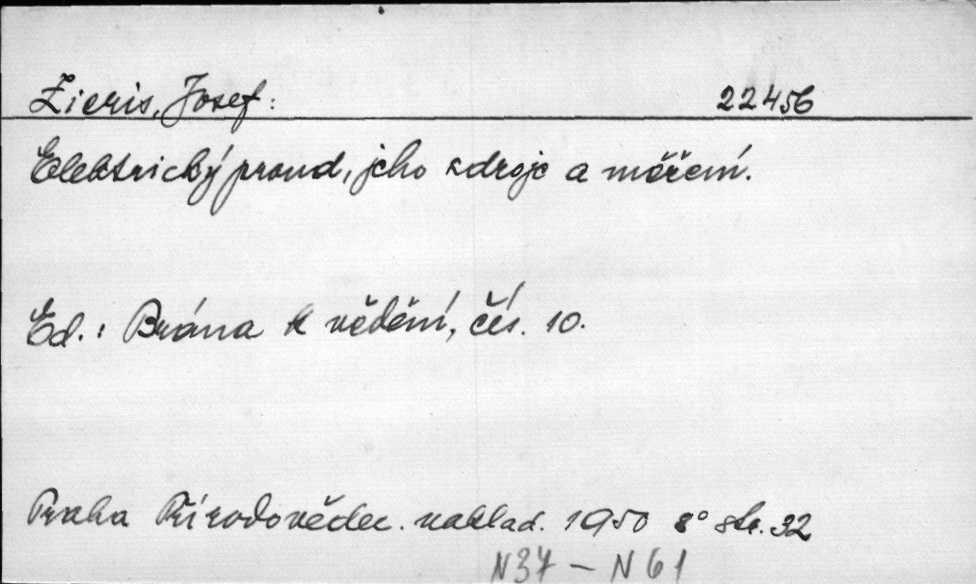 Zieris, Josef: 22456
Elektrický proud, jeho zdroje a měření.
Ed.: Brána k vědění, čís. 10.
Praha Přírodovědec. naklad. 1950 8° str. 32
N37 – N61